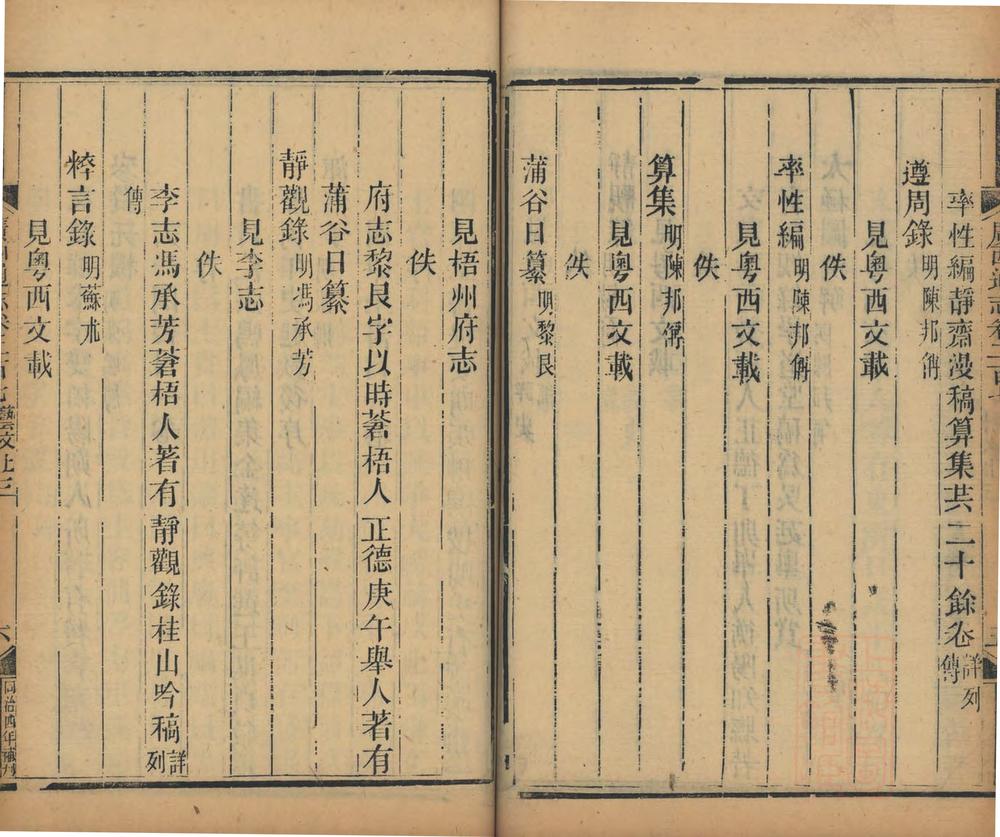 率性編靜齋漫稿算集共二十餘卷詳列傳
遵周錄明陳邦偁
見粵西文載
佚
率性編明陳邦偁
見粵西文載
佚
算集明陳邦偁
見粵西文載
佚
蒲谷日纂明黎良
見梧州府志
佚
府志黎良字以時蒼梧人正德庚午舉人著有
蒲谷日纂
靜觀錄明馮承芳
見李志
佚
李志馮承芳蒼梧人著有靜觀錄桂山吟稿詳列
傳
粹言錄明蘇朮
見粵西文載
六
同治四年補刊